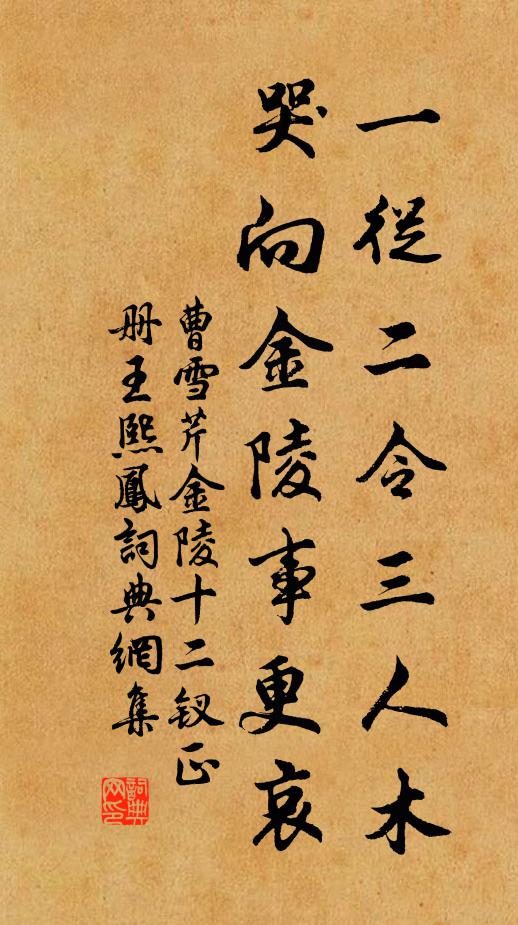 一從二令三人木
哭向金陵事更哀
曹雪芹金陵十二釵正
册王熙鳳詞典網集
詞典网印